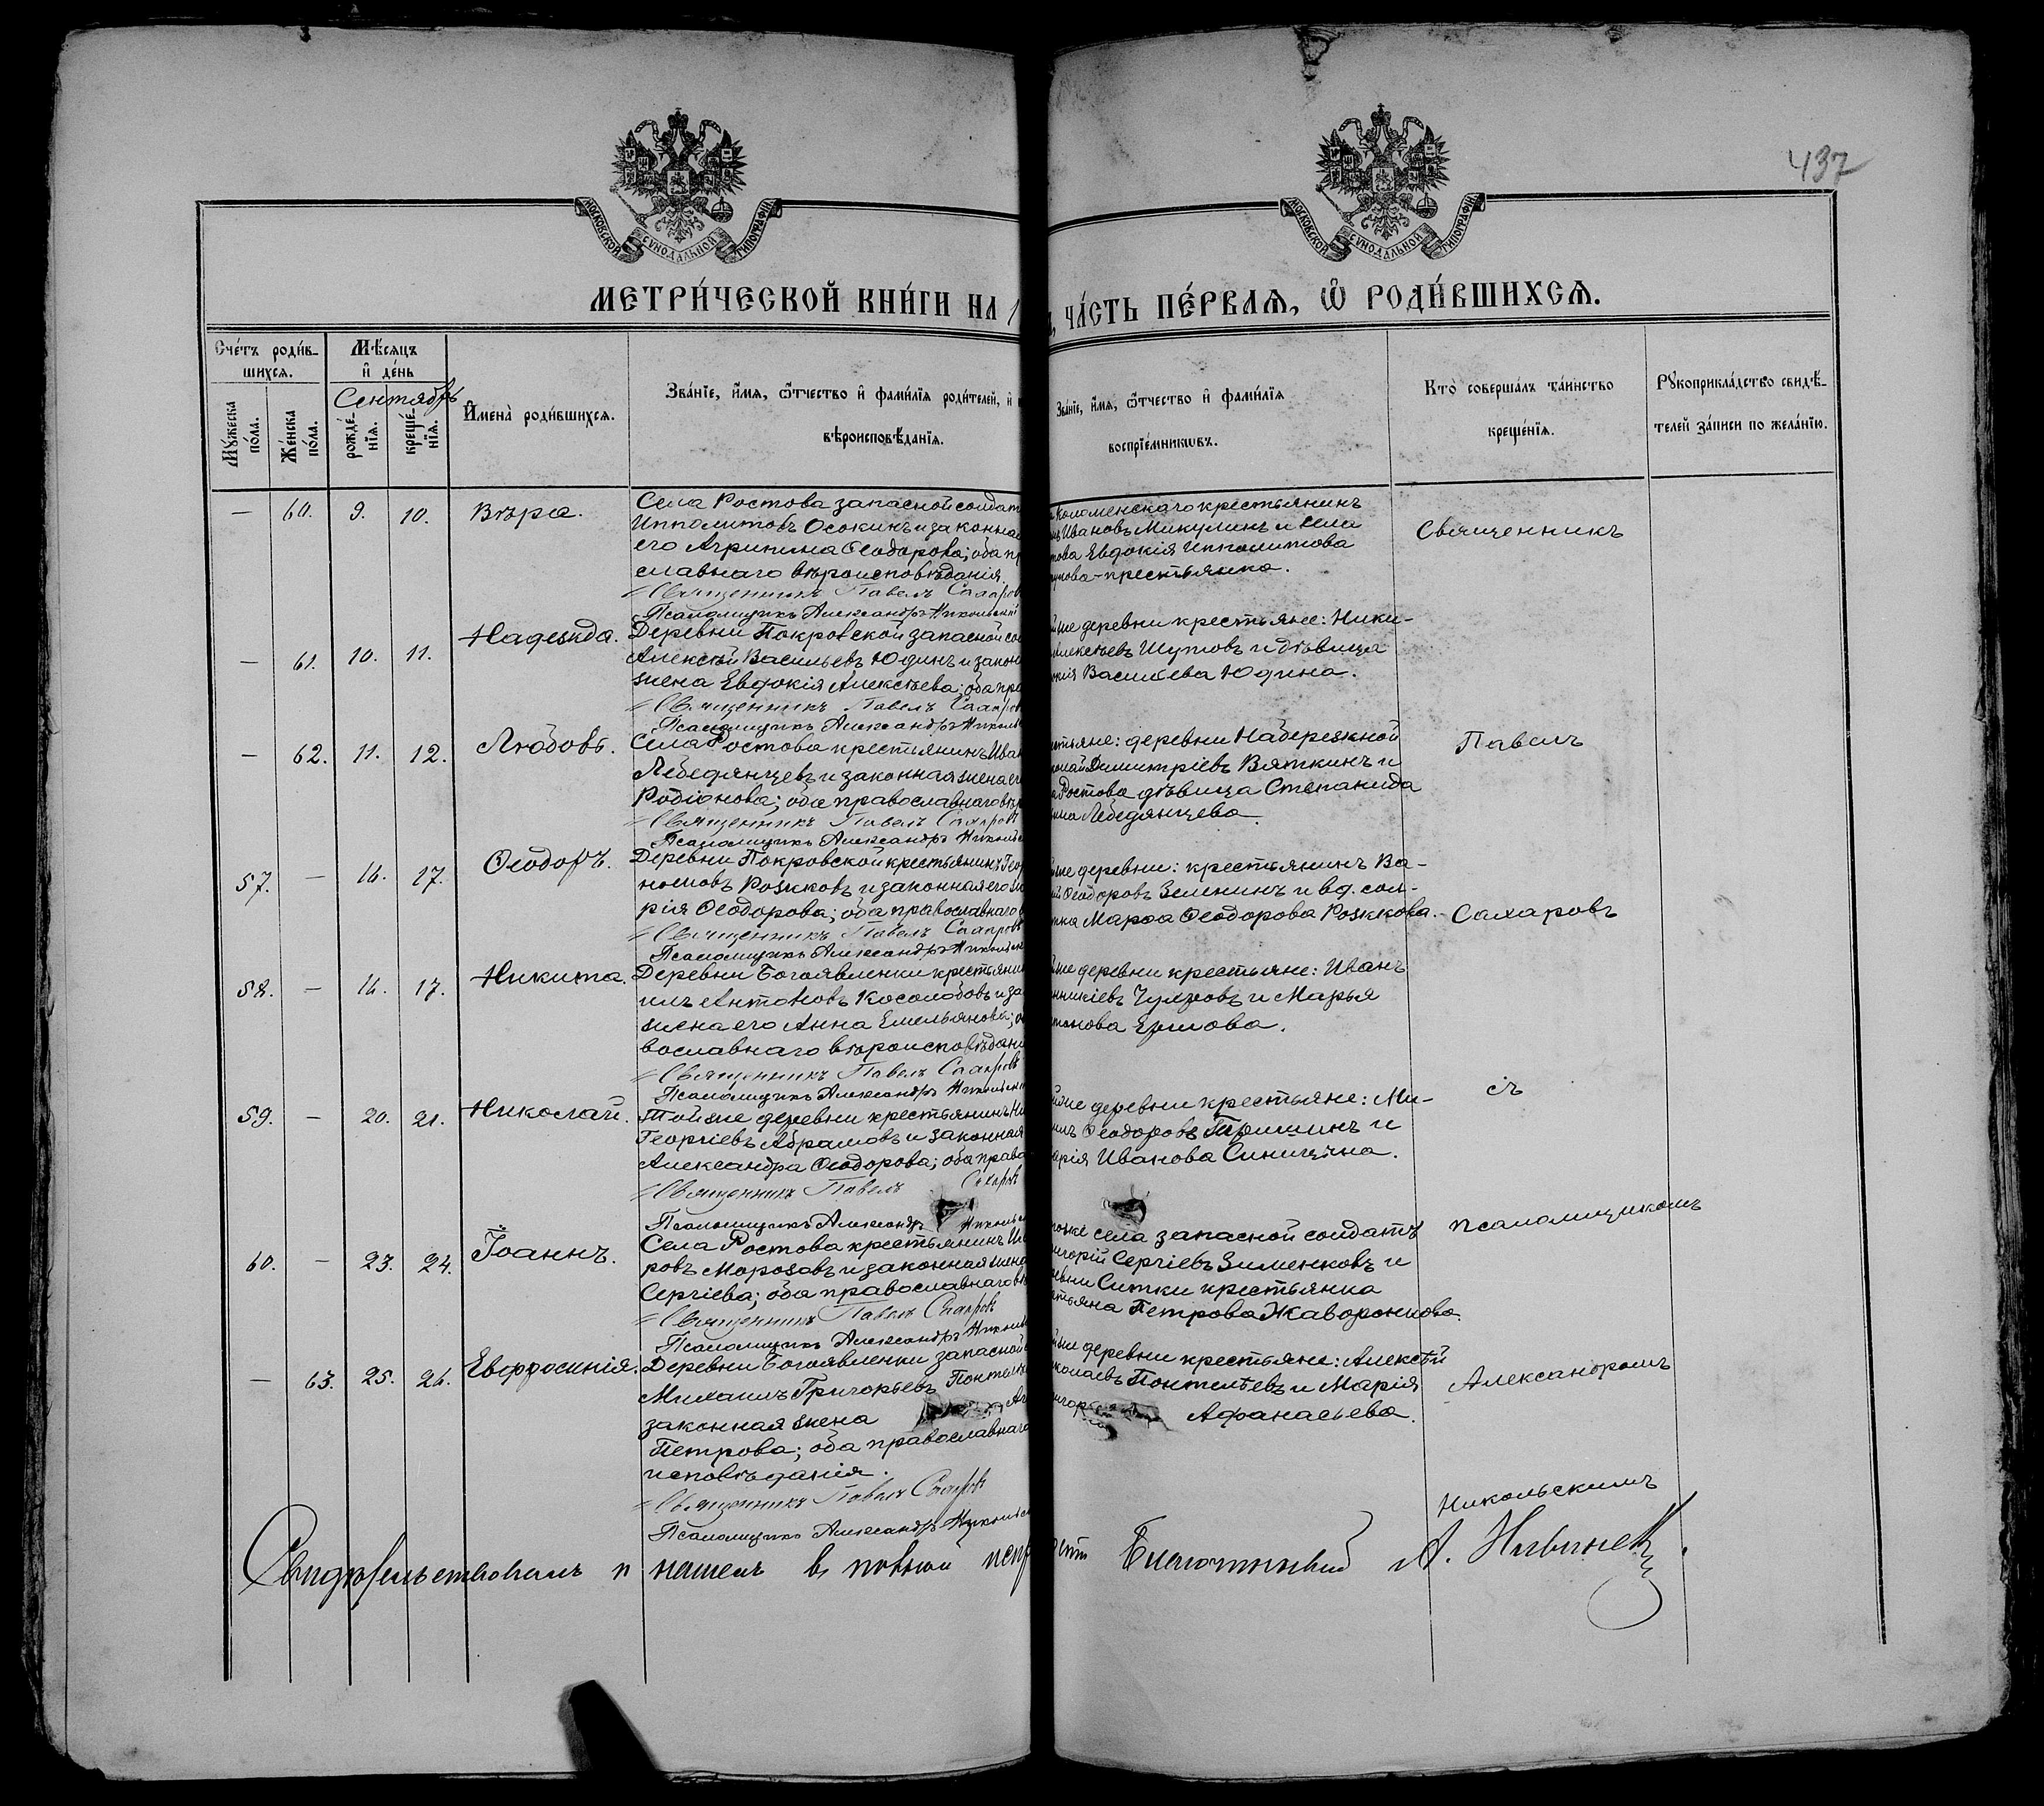 437
МОСКОВСКОЙ СѴНОДАЛЬНОЙ ТИПОГРАФІИ
МОСКОВСКОЙ СѴНОДАЛЬНОЙ ТИПОГРАФІИ
МЕТРИ́ЧЕСКОЙ КНИ́ГИ НА 1
ЧА́СТЬ ПЕ́РВАѦ, Ѽ РОДИ́ВШИХСѦ.
Сче́тъ роди́в-
шихсѧ.
Мꙋжеска по́ла.
Же́нска по́ла.
Мѣ́сѧцъ и҆ де́нь
Сентябрь
рожде́-
нїѧ.
креще́-
нїѧ.
И҆мена̀ роди́вшихсѧ.
Зва́нїе, и҆́мѧ, ѻ҆́тчество и҆ фами́лїѧ роди́телей, и҆
вѣроисповѣ́данїѧ.
Зва́нїе, и҆́мѧ, ѻ҆́тчество и҆ фами́лїѧ
воспрїе́мникѡвъ.
Кто̀ соверша́лъ та́инство
креще́нїѧ.
Рꙋкоприкла́дство свидѣ́-
телей за́писи по жела́нїю.
— 60. 9. 10. Вѣра.
Села Ростова запасной солдат
Ипполитовъ Осокинъ и законная
его Агрипина Ѳеодорова; оба пр
славнаго вѣроисповѣданія.
Священникъ Павелъ Сахаров
Псаломщикъ Александръ Никольский
Коломенскаго крестьянинъ
Ивановъ Микулинъ и села
това Евдокія Ипполитова
крестьянка.
Священникъ
— 61. 10. 11. Надежда.
Деревни Покровской запасной со
Алексѣй Васильевъ Юдинъ и закон
жена Евдокія Алексѣева; оба пра
Священникъ Павелъ Сахаров
Псаломщикъ Александръ Николь
же деревни крестьяне: Ники-
Алексѣевъ Шутовъ и дѣвица
Васильева Юдина.
— 62. 11. 12. Любовь.
Села Ростова крестьянинъ Иван
Лебедянцевъ и законная жена ег
Родіонова; оба православнаго вѣр
Священникъ Павелъ Сахаров
Псаломщикъ Александръ Никольс
стьяне: деревни Набережной
колай Димитріевъ Вяткинъ и
Ростова дѣвица Степанида
Лебедянцева.
Павелъ
57. — 16. 17. Ѳеодоръ.
Деревни Покровской крестьянинъ Геор
Рожковъ и законная его ж
рія Ѳеодорова; оба православнаго
Священникъ Павелъ Сахаровъ
Псаломщикъ Александръ Никольск
же деревни: крестьянинъ Ва-
Ѳеодоровъ Зеленинъ и вд. сол-
тка Марѳа Ѳеодорова Рожкова.
Сахаровъ
58. — 16. 17. Никита.
Деревни Богоявленки крестьянин
илъ Антоновъ Косолобовъ и за
жена его Анна Емельянова; о
вославнаго вѣроисповѣдані
Священникъ Павелъ Сахаровъ
Псаломщикъ Александръ Никольск
же деревни крестьяне: Иванъ
и Марья
Ершова.
59. — 20. 21. Николай.
Тойже деревни крестьянинъ Ни
Георгіевъ Абрамовъ и законная
Александра Ѳеодорова; оба право
Священникъ Павелъ Сахаров
Псаломщикъ Александръ Никольс
же деревни крестьяне: Ми-
илъ Ѳеодоровъ Гришинъ и
арія Иванова Синицина.
съ
60. — 23. 24. Іоаннъ.
Села Ростова крестьянинъ
ровъ Морозовъ и законная жена
Сергіева; оба православнаго вѣ
Священникъ Павелъ Сахаров
Псаломщикъ Александръ Николь
же села запасной солдатъ
игорій Сергіевъ Зименковъ и
евни Ситки крестьянка
атьяна Петрова Жаворонкова.
псаломщикомъ
— 63. 25. 26. Евфросинія.
Деревни Богоявленки запасной
Михаилъ Григорьевъ Понтель
законная жена
Петрова; оба православнаго
исповѣданія.
Священникъ Павелъ Сахаров
Псаломщикъ Александръ Никольс
же деревни крестьяне: Алексѣй
колаевъ Понтелѣевъ и Марія
Афанасьева.
Александромъ
Никольскимъ
Свидѣтельствовалъ и нашелъ въ полной испр
Благочинный А.